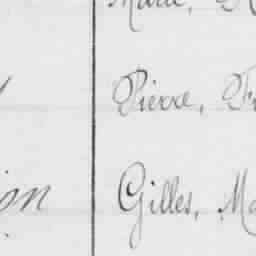 Marie,
Pierre, F
ion Gilles, Ma